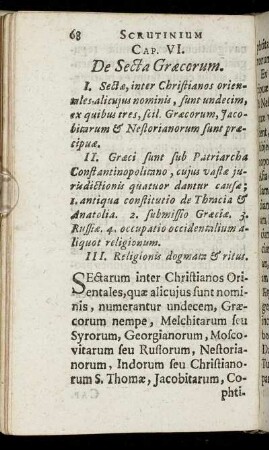 68 SCRUTINIUM
CAP. VI.
De Secta Græcorum.
I. Sectæ, inter Christianos orien-
tales alicujus nominis, sunt undecim,
ex quibus tres, scil. Græcorum, Jaco-
bitarum & Nestorianorum sunt præ-
cipuæ.
II. Græci sunt sub Patriarcha
Constantinopolitano, cujus vastæ ju-
risdictionis quatuor dantur causæ;
1. antiqua constitutio de Thracia &
Anatolia. 2. submissio Græciæ, 3.
Russiæ. 4. occupatio occidentalium a-
liquot religionum.
III. Religionis dogmata & ritus.
SEctarum inter Christianos Ori-
entales, quæ alicujus sunt nomi-
nis, numerantur undecem, Græ-
corum nempe, Melchitarum seu
Syrorum, Georgianorum, Mosco-
vitarum seu Russorum, Nestoria-
norum, Indorum seu Christiano-
rum S. Thomæ, Jacobitarum, Co-
phti-